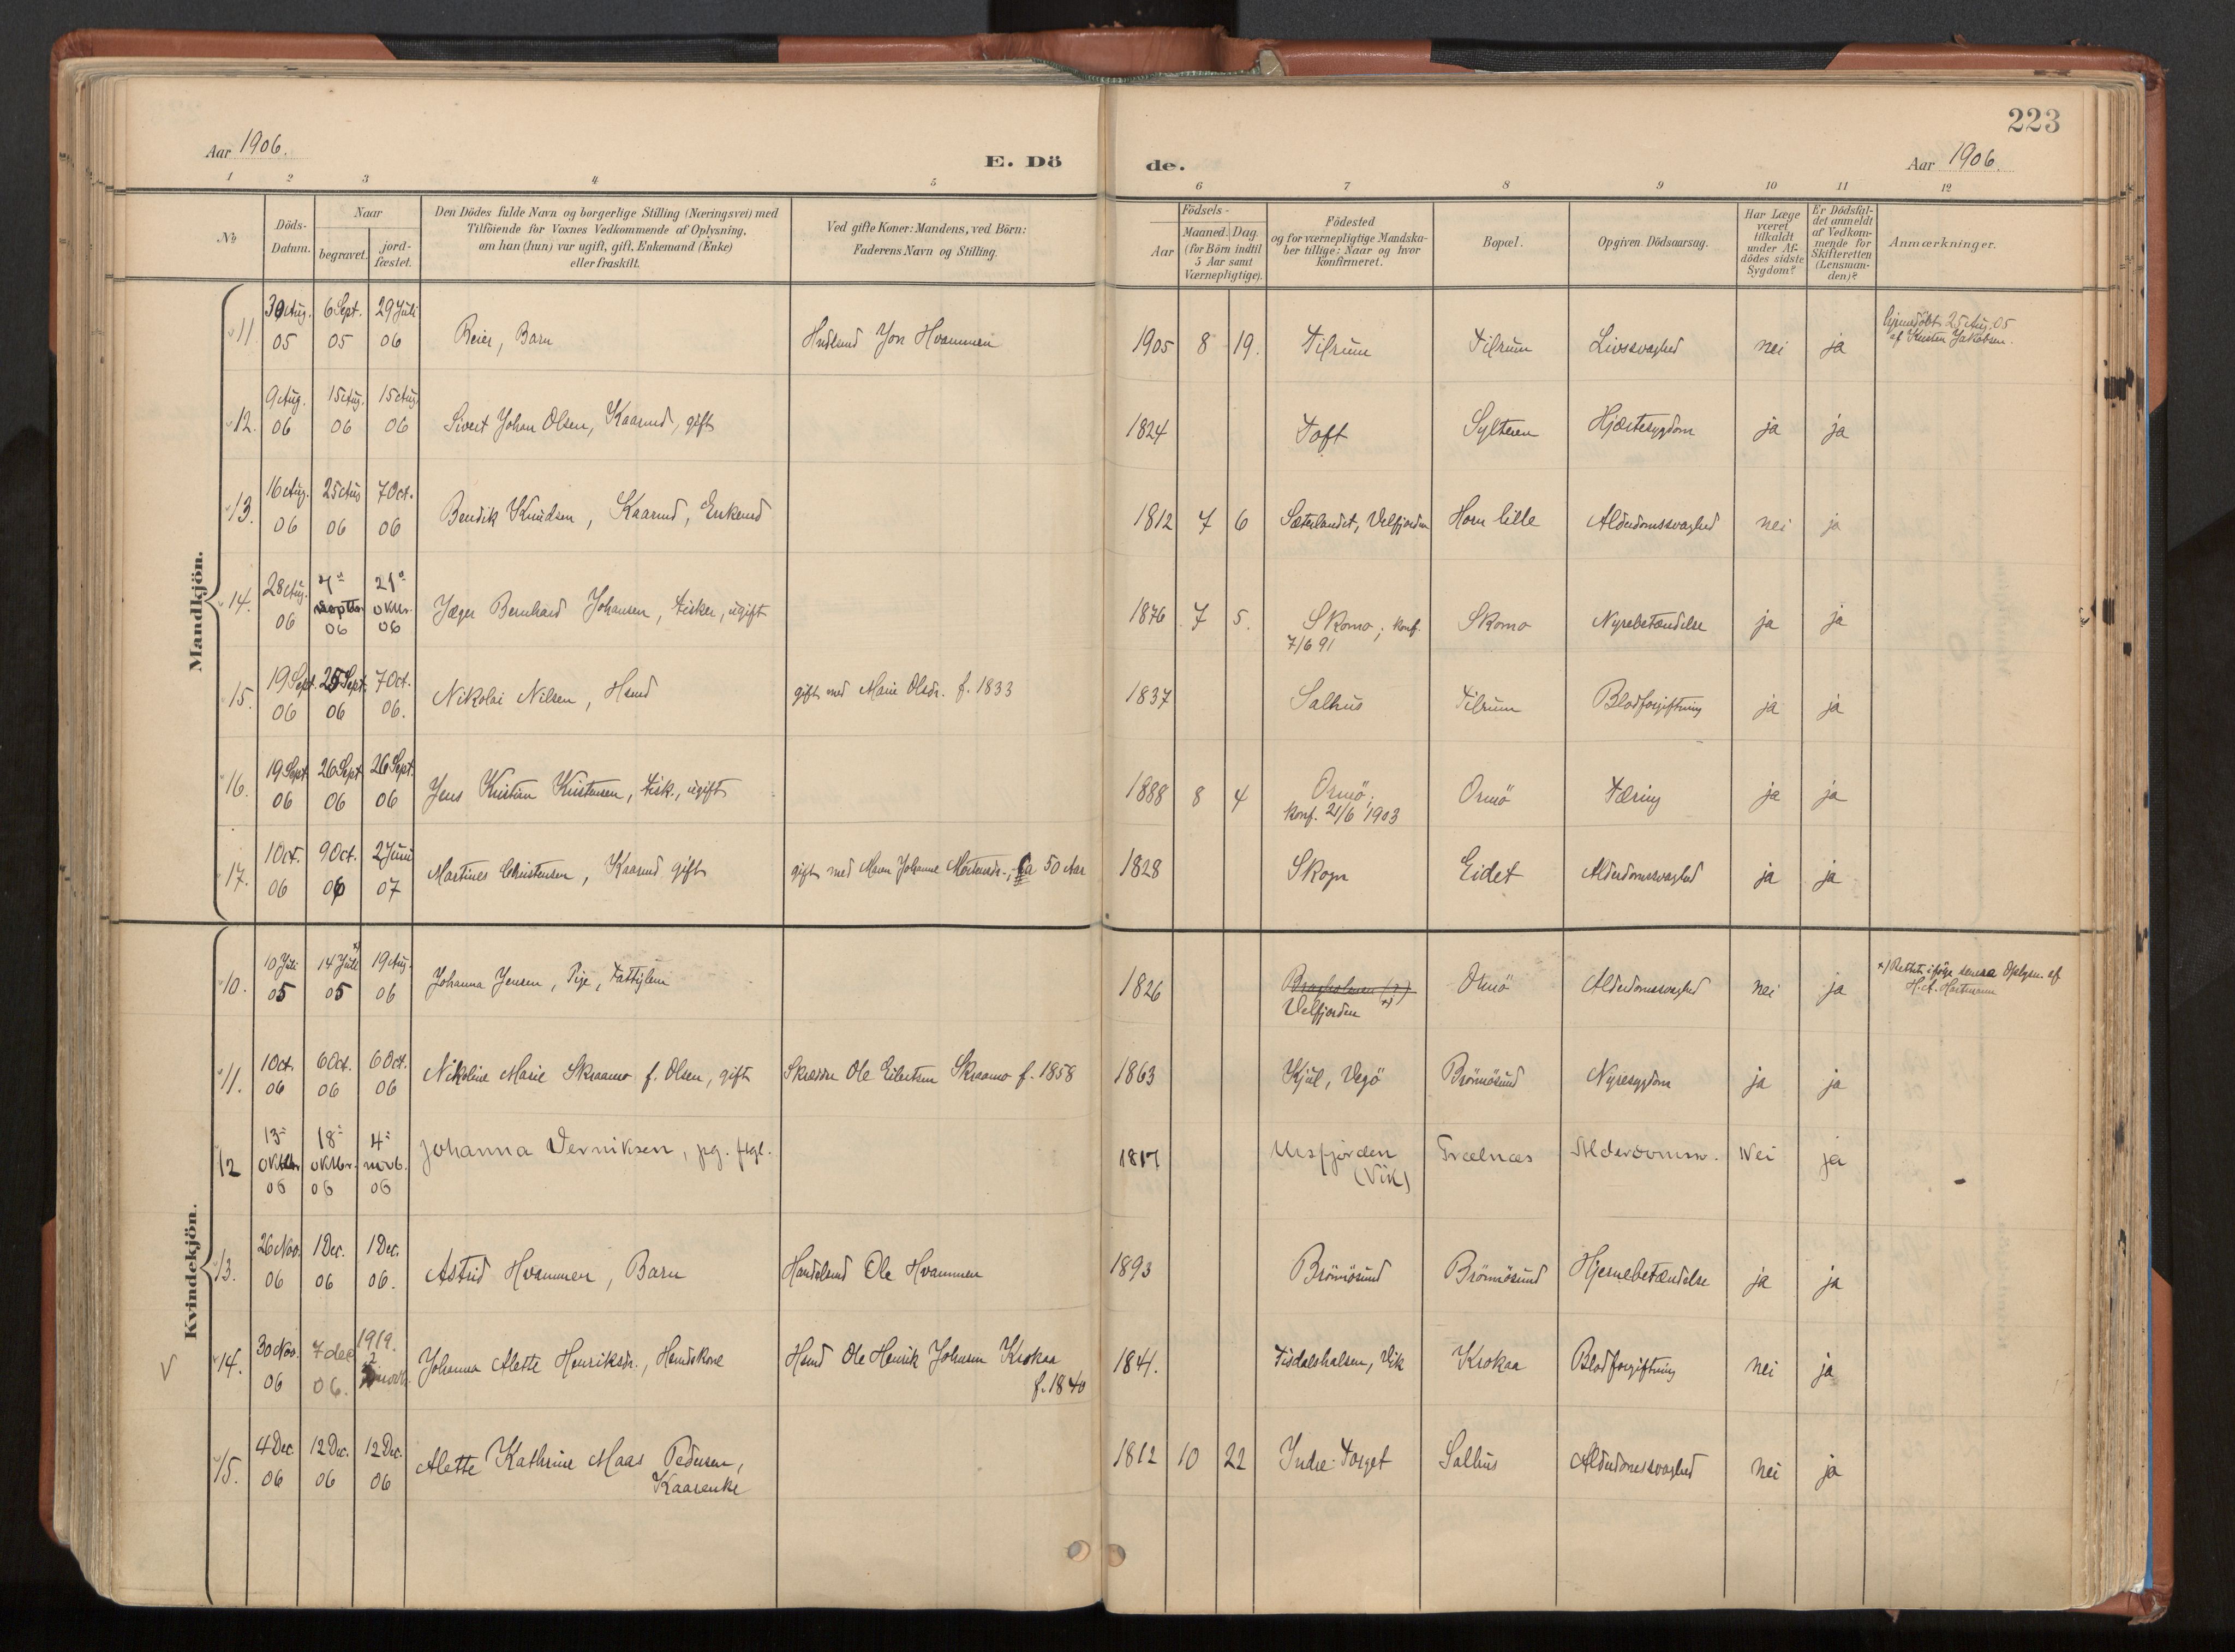 223
Aar 1906.
E. Dö
de.
Aar 1906.
1 2 3 4 5 6 7 8 9 10 11 12
No
Döds-
Datum.
Naar
begravet.
jord-
fæstet.
Den Dödes fulde Navn og borgerlige Stilling (Næringsvei) med
Tilföiende for Voxnes Vedkommende af Oplysning,
om han (hun) var ugift, gift, Enkemand (Enke)
eller fraskilt.
Ved gifte Koner: Mandens, ved Börn:
Faderens Navn og Stilling.
Födsels-
Aar
Maaned. Dag.
(for Börn indtil
5 Aar samt
Værnepligtige).
Födested
og for værnepligtige Mandska-
ber tillige: Naar og hvor
konfirmeret.
Bopæl.
Opgiven Dödsaarsag.
Har Læge
været
tilkaldt
under Af-
dödes sidste
Sygdom?
Er Dödsfal-
det anmeldt
af Vedkom-
mende for
Skifteretten
(Lensman-
den)?
Anmærkninger.
Mandkjön.
11. 30 Aug. 05 6 Sept. 05 29 Juli 06 Reier, Barn Hndlsmd Jon Hvammen 1905 8 19. Tilrum Tilrum Livssvaghed nei ja
hjemmedöbt 25 Aug. 05
af Kristen Jakobsen.
12. 9 Aug. 06 15 Aug. 06 15 Aug 06 Sivert Johan Olsen, Kaarmd, gift 1824 Toft Sylteren Hjertesygdom ja ja
13. 16 Aug. 06 25 Aug 06 7 Oct. 06 Bendik Knudsen, Kaarmd, Enkemd 1812 7 6 Sæterlandet, Velfjorden Horn lille Alderdomssvaghed nei ja
14. 28 Aug. 06 7de Septbr. 06 21de oktbr. 06 Jæger Bernhard Johansen, Fisker, ugift 1876 7 5. Skomo; konf.
7/6 91
Skomo Nyrebetændelse ja ja
15. 19 Sept. 06 25 Sept. 06 7 Oct. 06. Nikolai Nilsen, Hsmd gift med Marie Olsdr. f. 1833 1837 Salhus Tilrum Blodforgiftning ja ja
16. 19 Sept 06 26 Sept 06 26 Sept. 06 Jens Kristian Kristensen, Fisk., ugift 1888 8 4 Ormö,
konf. 21/6 1903
Ormö Tæring ja ja
17. 1 Oct. 06 9 Oct. 06 2 Juni 07 Martines Christensen, Kaarmd gift gift med Maren Johanne Mortensdr., ca 50 Aar 1828 Skogn Eidet Alderdomssvaghed ja ja
Kvindekjön.
10. 10 Juli 05 14 Juli 05 19 Aug. 06 Johanna Jensen, Pige, Fattiglem 1826 Bragholmen (?)
Velfjorden x)
Ormö Alderdomssvaghed nei ja
x) Rettet ifölge senere Oplysn. af
H. A. Hartmann
11. 1 Oct. 06 6 Oct. 06 6 Oct. 06 Nikoline Marie Skraamo f. Olsen, gift Skrædder Ole Eilertsen Skraamo f. 1858 1863 Kjul, Vegö Brönnösund Nyresygdom ja ja
12 13de oktbr 06 18de oktbr. 06 4de novb. 06 Johanna Verniksen, pg. ftgl. 1817 Ursfjorden
(Vik)
Trælnæs Alderdomssv. Nei ja
13. 26 Nov. 06 1 Dec. 06 1 Dec. 06. Astrid Hvammen, Barn Handelsmd Ole Hvammen 1893 Brönnösund Brönnösund Hjernebetændelse ja ja
14. 30 Nov. 06 7 dec 06. 1919. 2 novb. Johanna Alette Henriksdr., Hsmdskone Hsmd Ole Henrik Johansen Krokaa
f. 1840
1841. Tisdalshalsen, Vik Krokaa Blodforgiftning nei ja
15. 4 Dec. 06 12 Dec. 06 12 Dec. 06 Alette Kathrine Maas Pedersen,
Kaarenke
1812 10 22 Indre-Torget Salhus Alderdomssvaghed nei ja